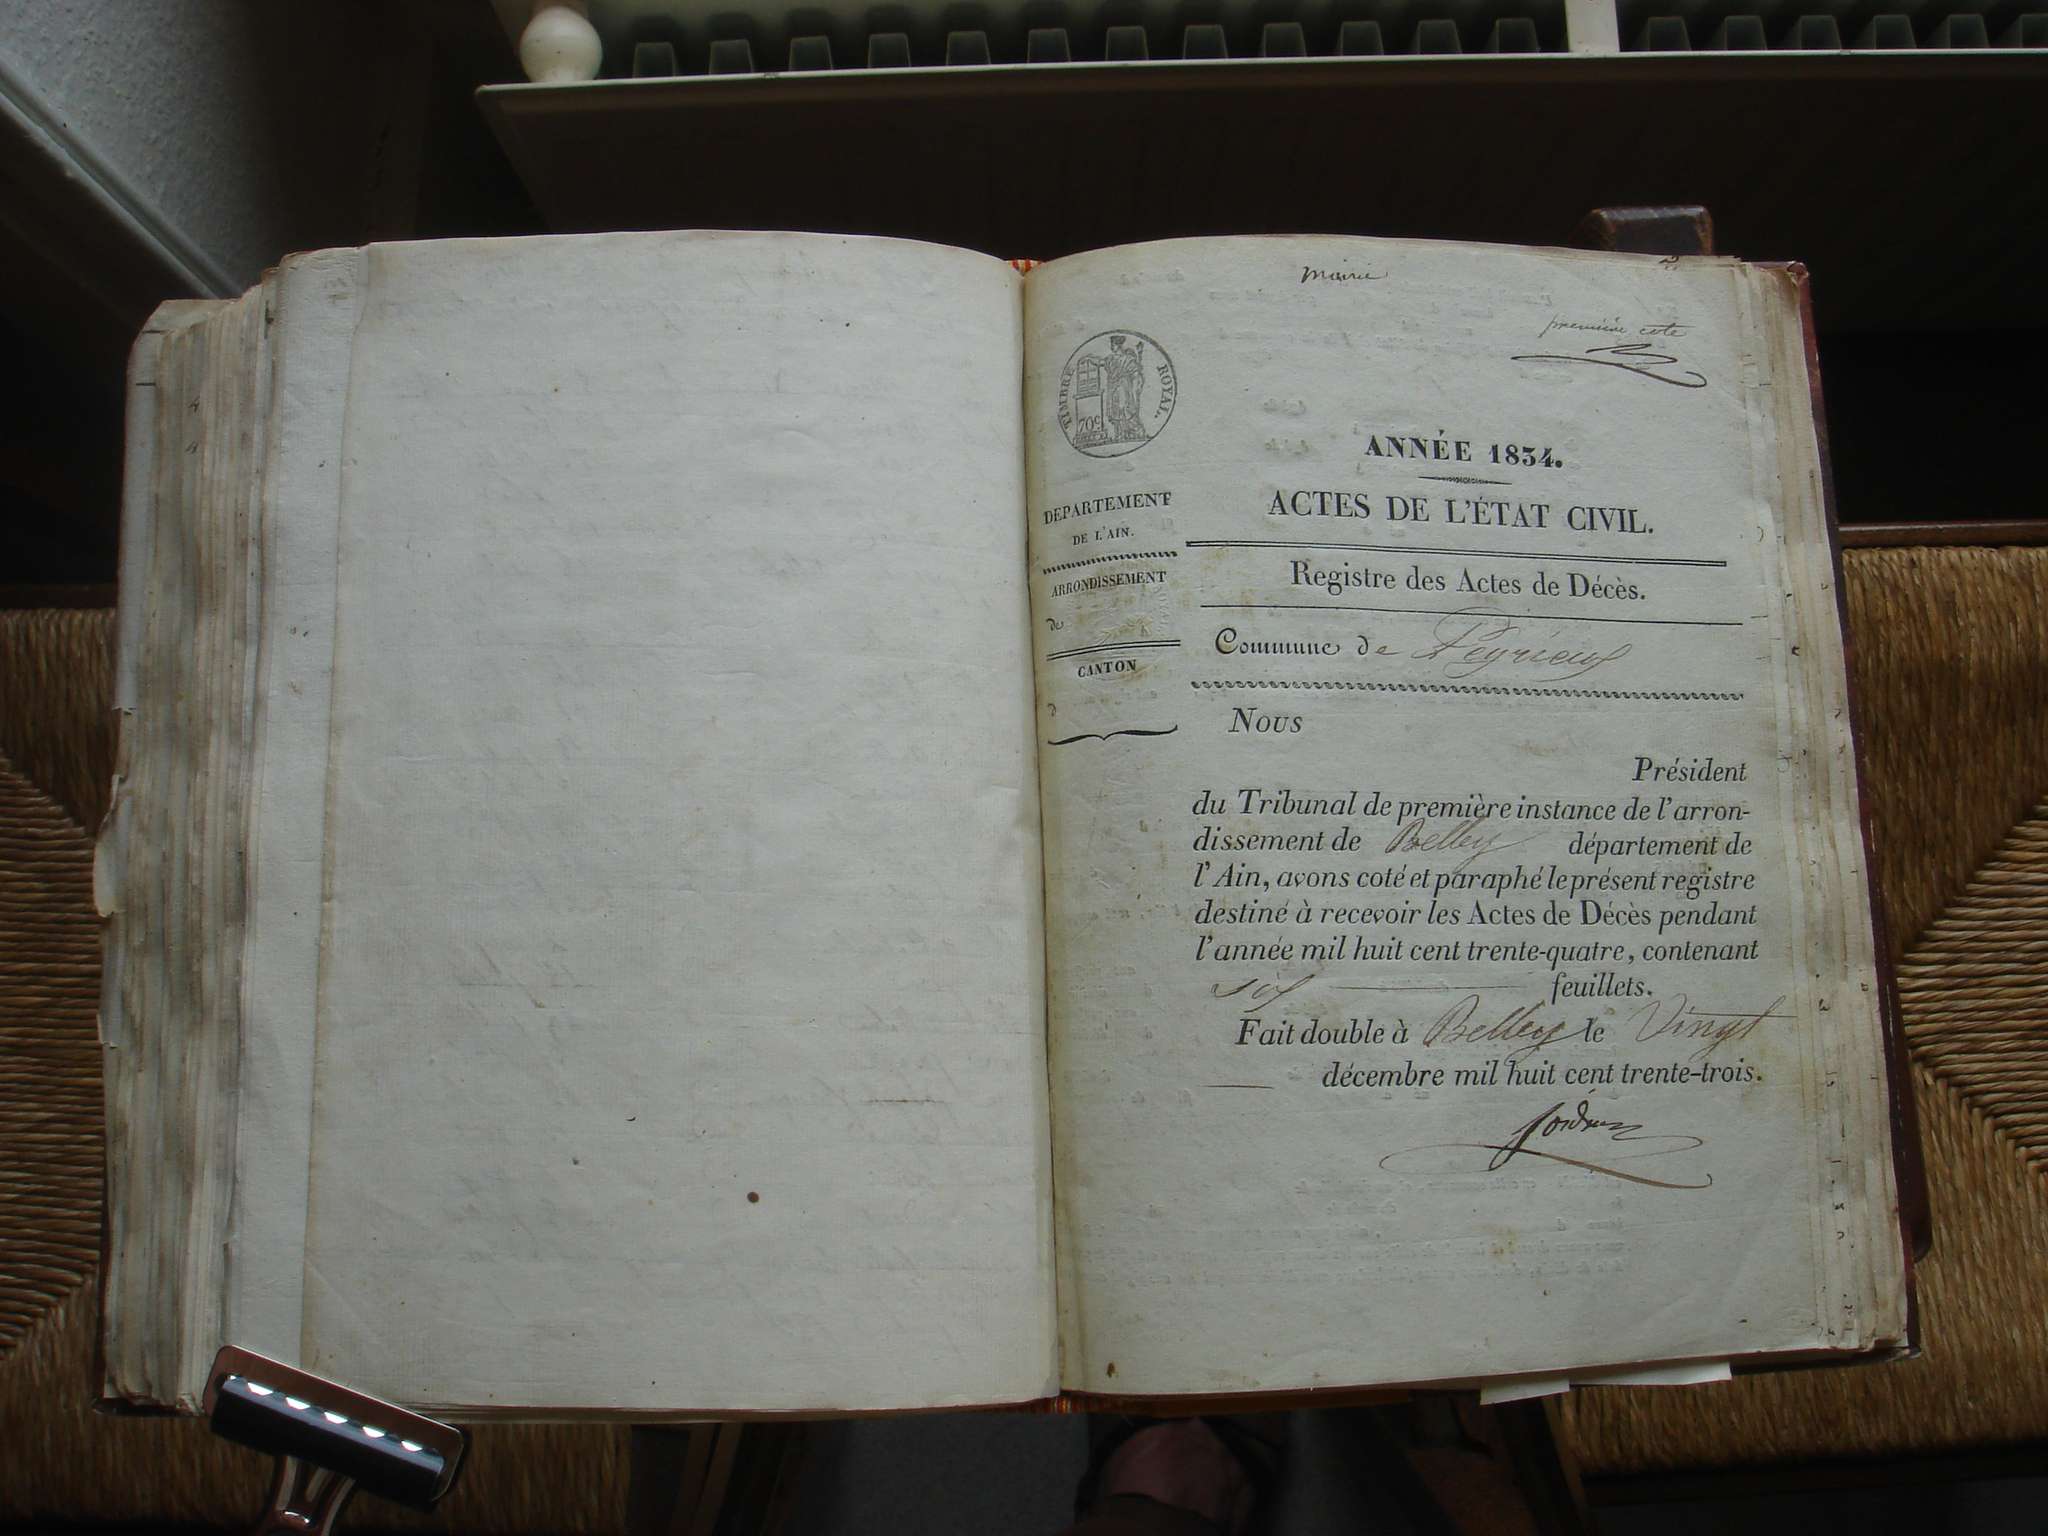 mairie
première cote
TIMBRE ROYAL
70c
ANNÉE 1834.
ACTES DE L'ÉTAT CIVIL.
DEPARTEMENT
DE L'AIN.
ARRONDISSEMENT
de
CANTON
d
Registre des Actes de Décès.
Commune de Peyrieux
Nous
Président
du Tribunal de première instance de l'arron-
dissement de Belley département de
l'Ain, avons coté et paraphé le présent registre
destiné à recevoir les Actes de Décès pendant
l'année mil huit cent trente-quatre, contenant
six feuillets.
Fait double à Belley le Vingt
décembre mil huit cent trente-trois.